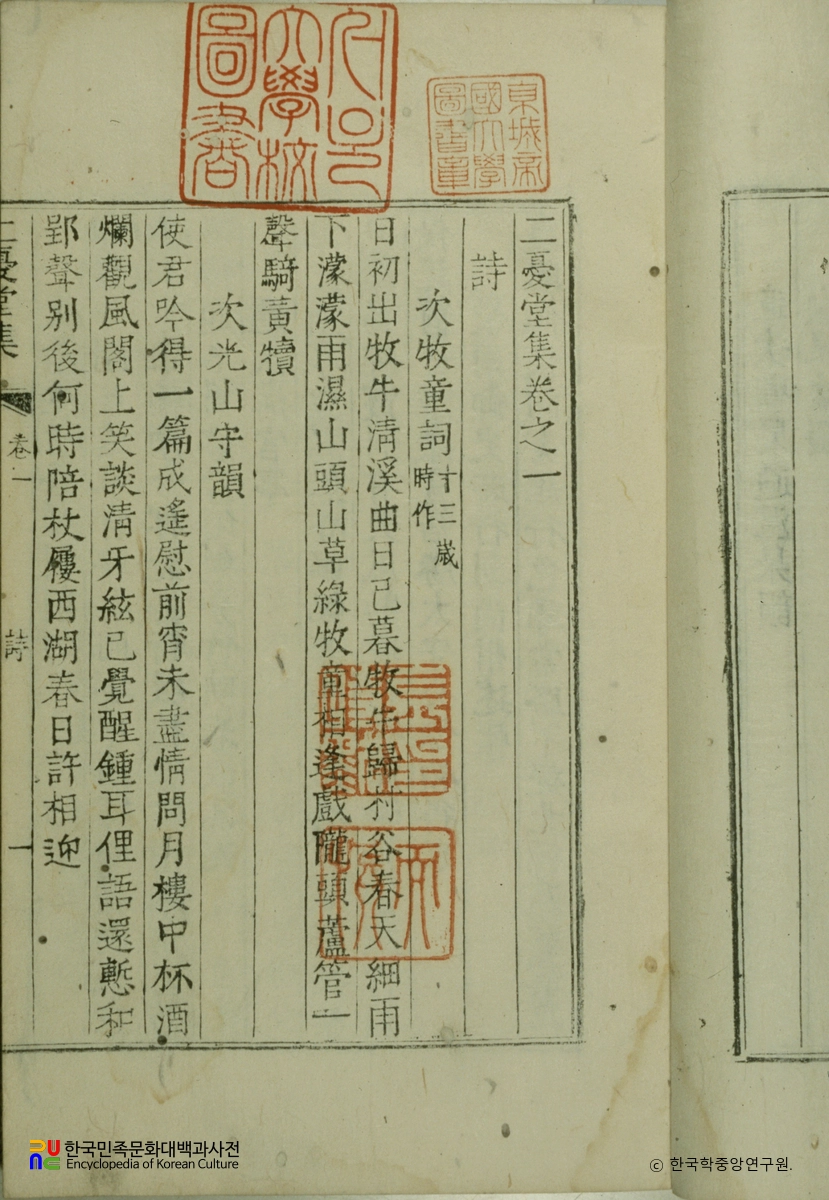 二憂堂集卷之一
詩
次牧童詞十三歲時作
日初出牧牛淸溪曲日已暮牧牛歸村谷春天細雨
下濛濛雨濕山頭山草綠牧童相逢戱隴頭蘆管一
聲騎黃犢
次光山守韻
使君吟得一篇成遙慰前宵未盡情問月樓中杯酒
爛觀風閣上笑談淸牙絃已覺醒鍾耳俚語還慙和
郢聲别後何時陪杖屨西湖春日許相迎
二憂堂集 卷一 詩 一
京城帝國大學圖書章
大學校圖書
한국민족문화대백과사전
Encyclopedia of Korean Culture
© 한국학중앙연구원.